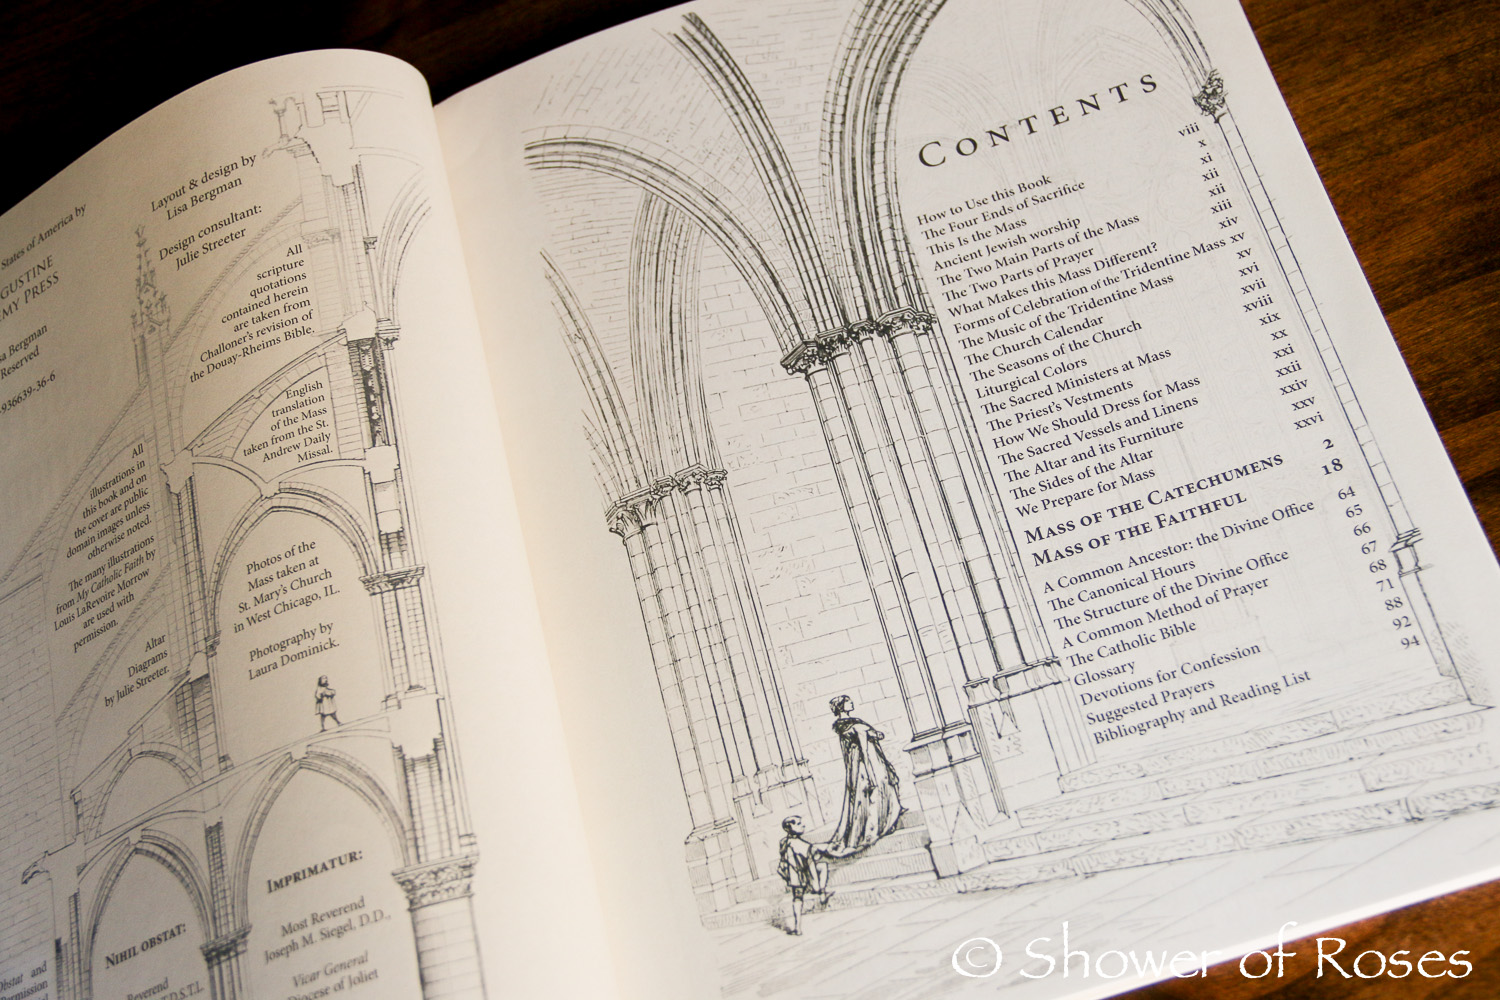 States of America by
GUSTINE
EMY PRESS
sa Bergman
Reserved
936639-36-6
All
illustrations in
this book and on
the cover are public
domain images unless
otherwise noted.
The many illustrations
from My Catholic Faith by
Louis LaRevoire Morrow
are used with
permission.
Altar
Diagrams
by Julie Streeter.
NIHIL OBSTAT:
Reverend
bstat and
Permission
Layout & design by
Lisa Bergman
Design consultant:
Julie Streeter
All
scripture
quotations
contained herein
are taken from
Challoner's revision of
the Douay-Rheims Bible.
English
translation
of the Mass
taken from the St.
Andrew Daily
Missal.
Photos of the
Mass taken at
St. Mary's Church
in West Chicago, IL.
Photography by
Laura Dominick.
IMPRIMATUR:
Most Reverend
Joseph M. Siegel, D.D.,
Vicar General
Diocese of Joliet
CONTENTS
How to Use this Book viii
The Four Ends of Sacrifice x
This Is the Mass xi
Ancient Jewish worship xii
The Two Main Parts of the Mass xii
The Two Parts of Prayer xiii
What Makes this Mass Different? xiv
Forms of Celebration of the Tridentine Mass xv
The Music of the Tridentine Mass xv
The Church Calendar xvi
The Seasons of the Church xvii
Liturgical Colors xviii
The Sacred Ministers at Mass xix
The Priest's Vestments xx
How We Should Dress for Mass xxi
The Sacred Vessels and Linens xxii
The Altar and its Furniture xxiv
The Sides of the Altar xxv
We Prepare for Mass xxvi
MASS OF THE CATECHUMENS 2
MASS OF THE FAITHFUL 18
A Common Ancestor: the Divine Office 64
The Canonical Hours 65
The Structure of the Divine Office 66
A Common Method of Prayer 67
The Catholic Bible 68
Glossary 71
Devotions for Confession 88
Suggested Prayers 92
Bibliography and Reading List 94
© Shower of Roses